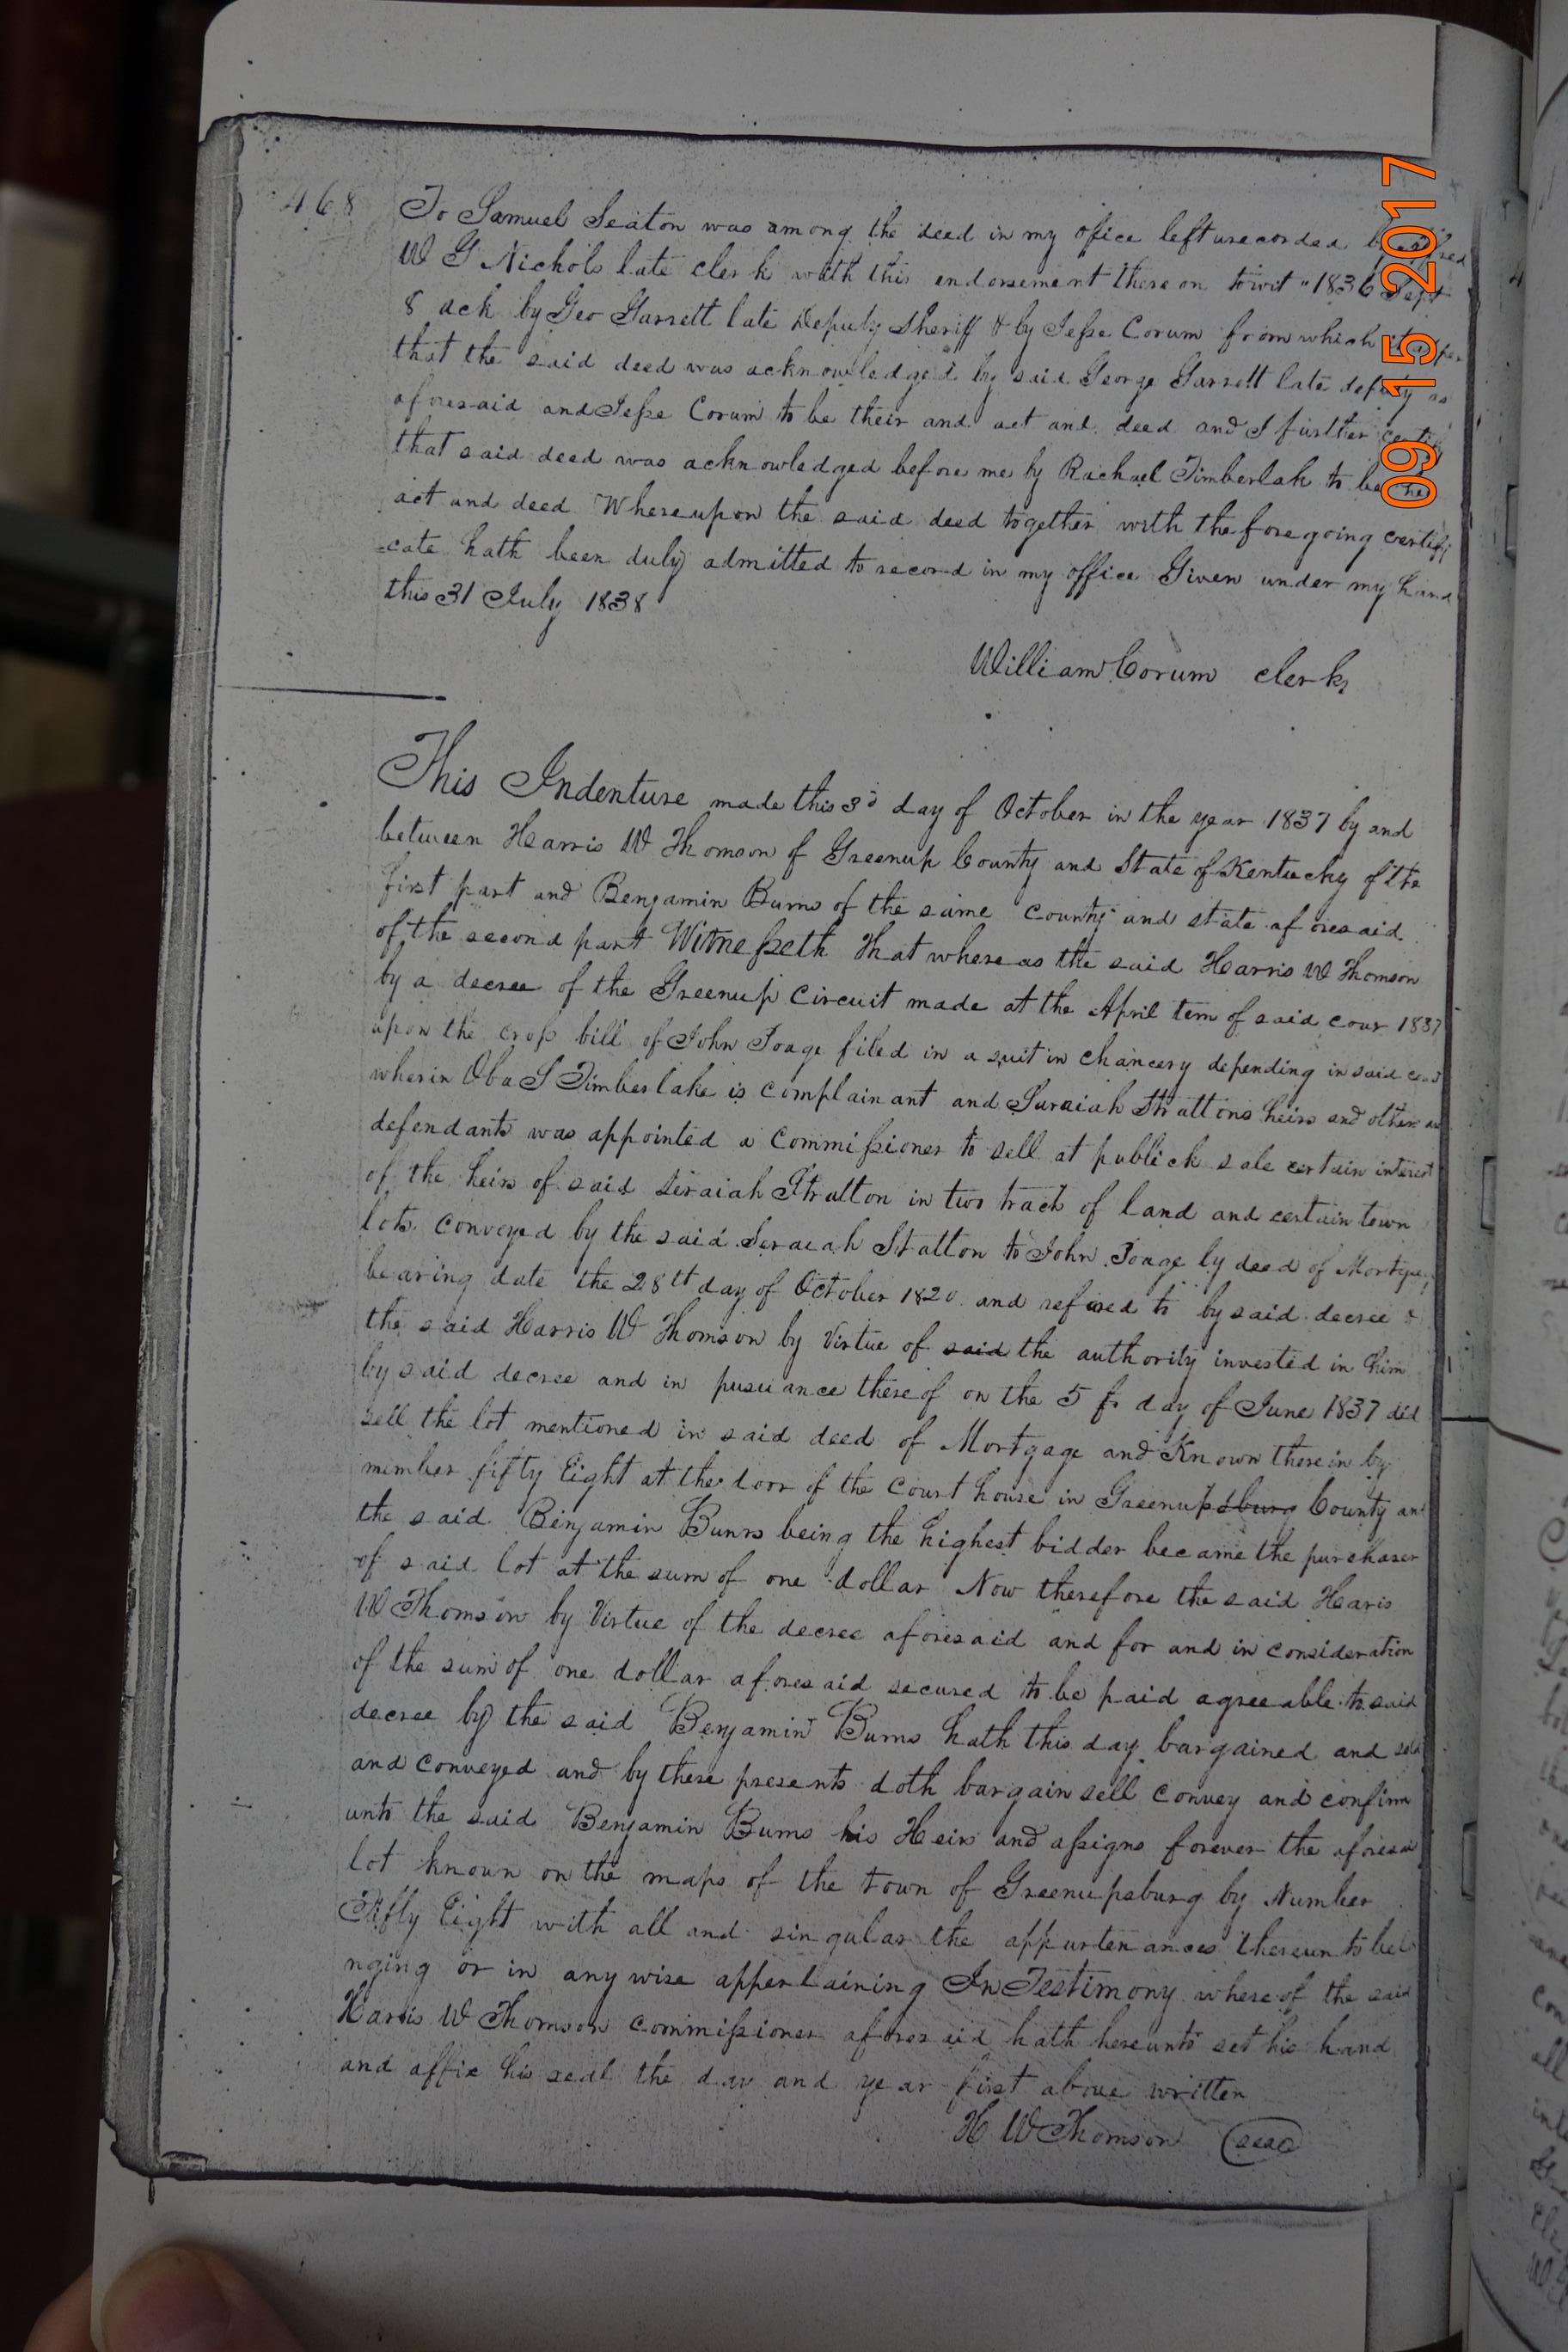 468
To Samuel Seaton was among the deed in my office left unrecorded by
W G Nichols late clerk with this endorsement there on towit "1836 Sept
8 ack by Geo Garrett late Deputy Sheriff & by Jesse Corum from which it
that the said deed was acknowledged by said George Garrett late deputy as
aforesaid and Jesse Corum to be their and act and deed and I further certify
that said deed was acknowledged before me by Rachael Timberlak to be
act and deed Whereupon the said deed together with the foregoing certifi
-cate hath been duly admitted to record in my office Given under my hand
this 31 July 1838
William Corum clerk
This Indenture made this 3d day of October in the year 1837 by and
between Harris W Thomson of Greenup County and State of Kentucky of the
first part and Benjamin Burns of the same county and state aforesaid
of the second part Witnesseth That where as the said Harris W Thomson
by a decree of the Greenup Circuit made at the April term of said cour 1837
upon the cross bill of John Poage filed in a suit in chancery depending in said
wherin Oba S Timberlake is complainant and Suraiah Strattons heirs and others
defendants was appointed a commissioner to sell at publick sale certain interest
of the heirs of said Seraiah Stratton in two track of land and certain town
lots conveyed by the said Seraiah Statton to John Poage by deed of Mortgage
bearing date the 28th day of October 1820 and refered to by said decree &
the said Harris W Thomson by Virtue of said the authority invested in him
by said decree and in pusuance thereof on the 5 day of June 1837 did
sell the lot mentioned in said deed of Mortgage and Known therein by
number fifty Eight at the door of the court house in Greenupsburg County and
the said Benjamin Bunrs being the highest bidder became the purchaser
of said lot at the sum of one dollar Now therefore the said Haris
W Thomson by Virtue of the decree aforesaid and for and in consideration
of the sum of one dollar aforesaid secured to be paid agreeable to said
decree by the said Benjamin Burns hath this day bargained and sold
and conveyed and by these presents doth bargain sell convey and confirm
unto the said Benjamin Burns his Heirs and assigns forever the aforesaid
lot known on the maps of the town of Greenupsburg by Number
Fifty Eight with all and singular the appurtenances thereunto belo
nging or in any wise appertaining In Testimony whereof the said
Harris W Thomson commissioner aforesaid hath hereunto set his hand
and affix his seal the day and year first above written
H W Thomson (seal)
09 15 2017